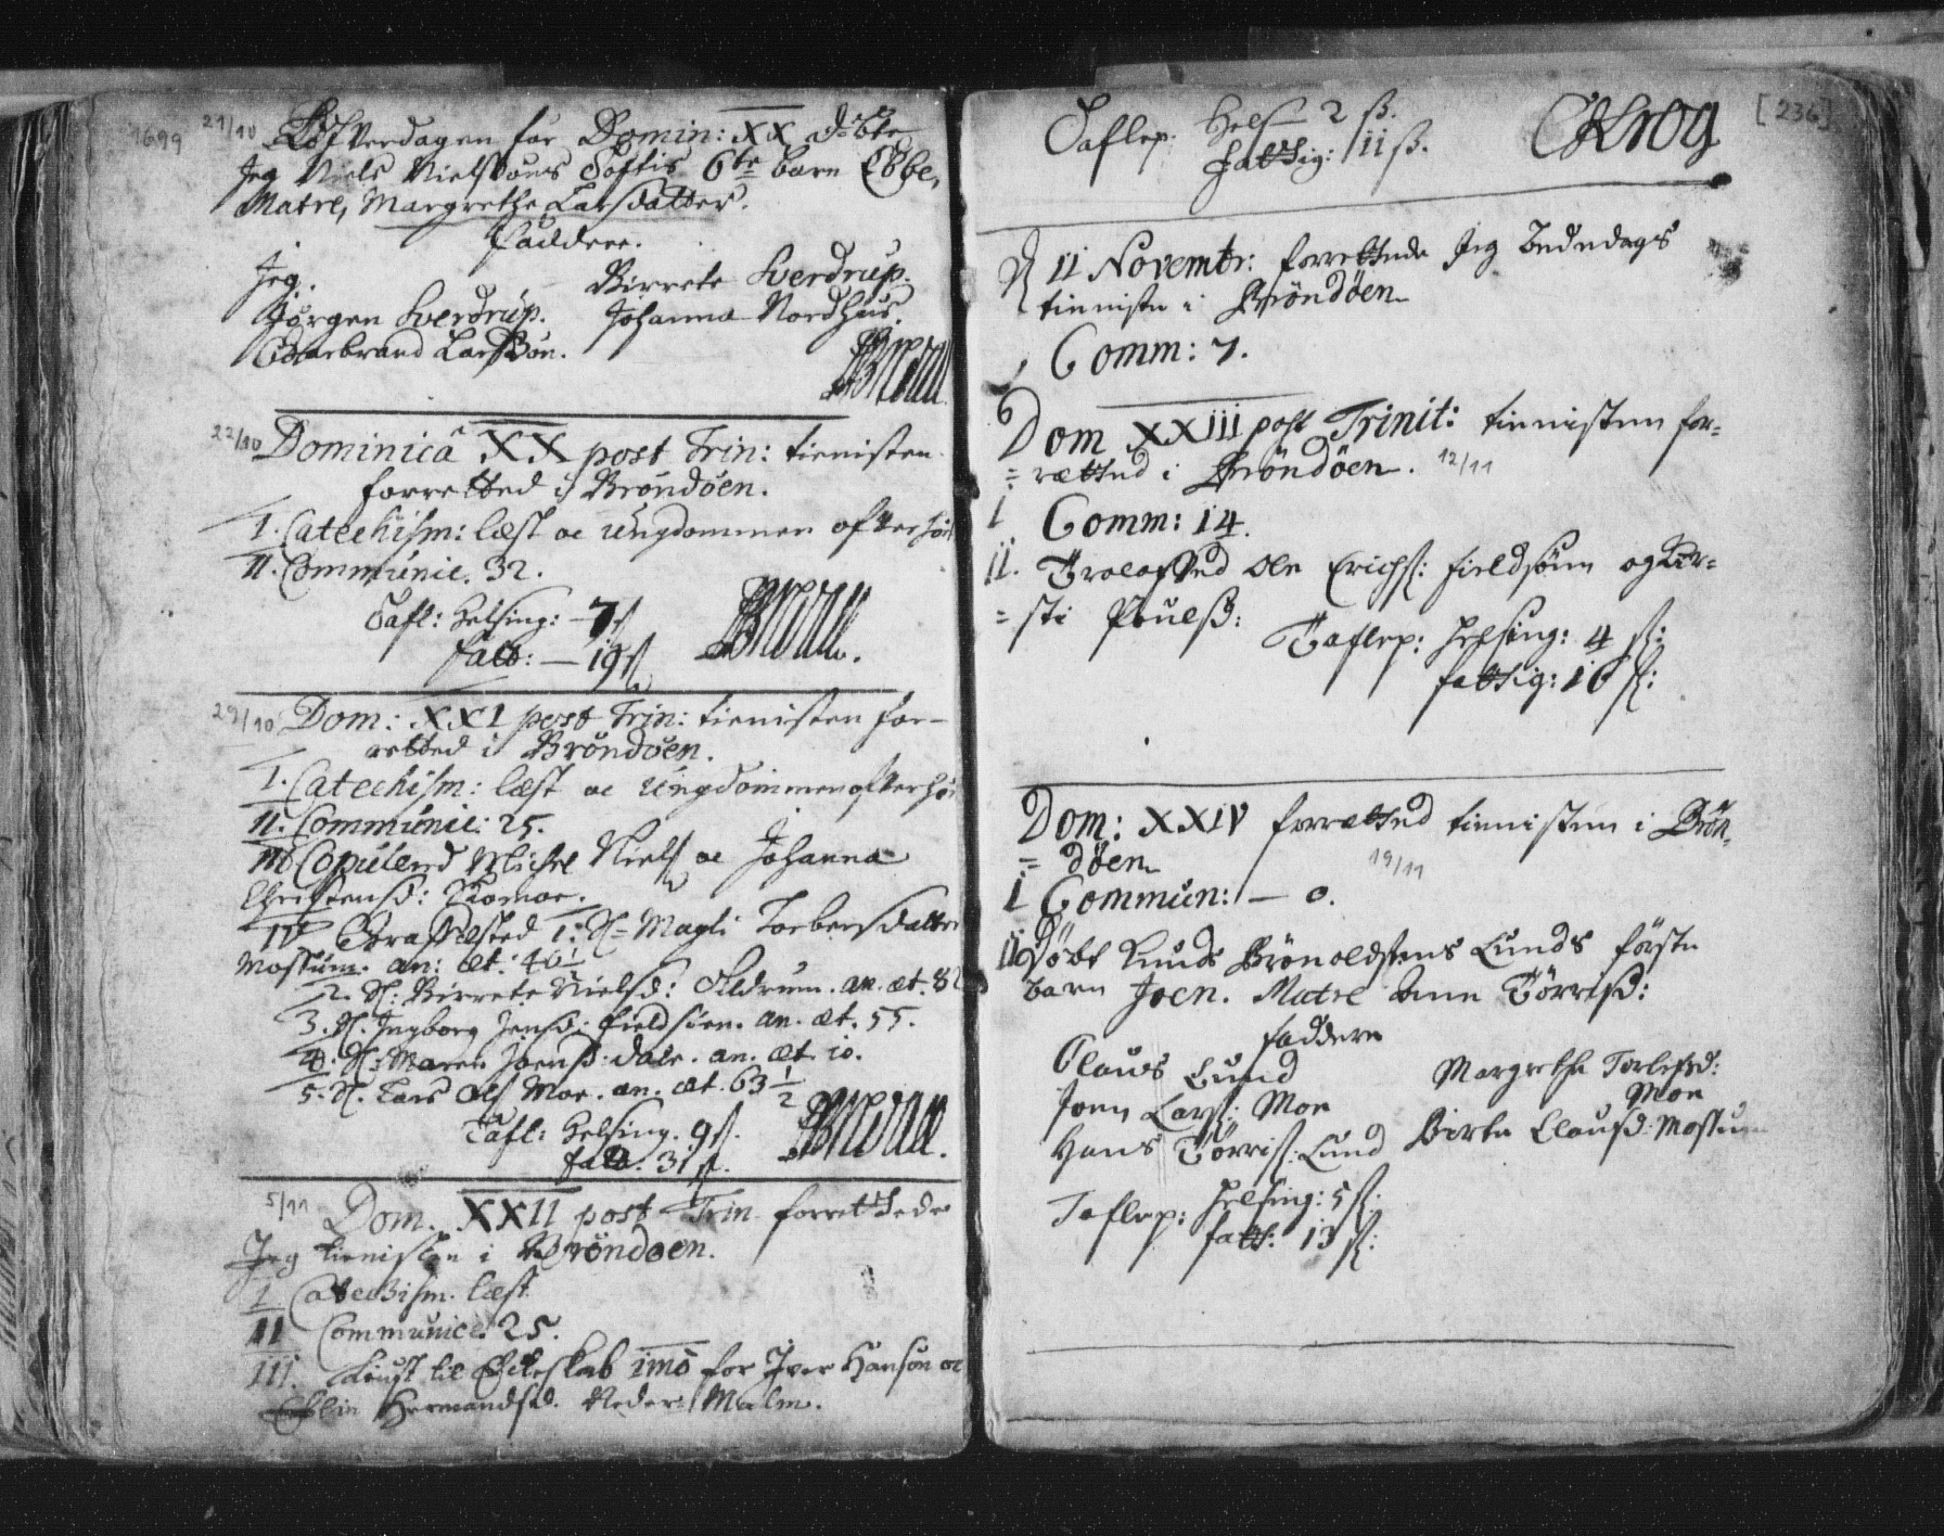 1699
21/10 Löfverdagen for Domin: XX döbte
Jeg Niels Nielsöns Toftis 6te barn Ebbe,
Matre, Margrethe Larsdatter.
Faddere.
Jeg. Birrete Sverdrup.
Jörgen Sverdrup. Johanna Nordhus.
Larsöön.
22/10 Dominicâ XX post Trin: tienisten
forretted i Bröndöen.
I. Catechism: læst oc Ungdommen ofverhör
II. Communic. 32.
Tafl: Helsing: — 7 ß
fatt: — 19 ß
29/10 Dom: XXI post Trin: tienisten for-
retted i Bröndöen.
I. Catechism: læst oc Ungdommen ofverhör
II. Communic: 25.
III Copulerd Michel Niels oc Johanna
Christensd: Komoe.
IV Graffæsted 1. S: Magli Torbersdatter
Mossum. an: æt: 40 1/2
2. S: Birrete Nielsd: Sildrum. an. æt. 82
3. S. Ingborg Jensd: fieldsöen. an. æt. 55.
4. S: Maren Joensd: Dale. an. æt. 10.
5. S. Lars Ols Moe. an. æt. 63 1/2
Tafl: Helsing. 9 ß.
fatt: 31 ß.
5/11 Dom. XXII post Trin forrettede
Jeg tienisten i Bröndöen.
I Catechism. læst
II Communice 25.
III. Liust til Ecteskab imo for Iver Hanson oc
Eblin Hermandsd. Neder Malm.
[236]
Taflep: Hels 2 ß. CKrog
Fattig: 11 ß.
D 11 Novembr: forrettede Jeg bededags
tieniste i Bröndöen
Comm: 7.
Dom XXIII post Trinit: tienisten for=
=rætted i Bröndöen. 12/11
I Comm: 14.
II. Trolofved Ole Erichs: fieldsöen og Kir=
=sti Poulsd:
Taflep: Helsing: 4 ß:
fattig: 16 ß:
Dom: XXIV forrætted tienisten i Brön,
= döen 19/11
I Commun: — 0.
II Döbt Knud Brönoldsens Lunds förste
barn Joen. Matre Anne Törrisd:
faddere
Claus Lund Margrethe Torlefsd:
Moe
Joen Lars: Moe
Hans Törris: Lund Birte Clausd: Mossum
Taflep: Helsing: 5 ß:
fatt: 13 ß: